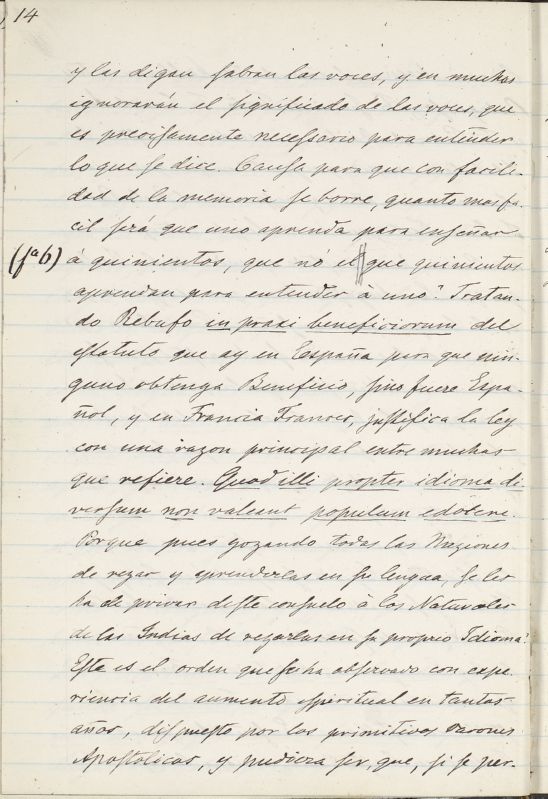 14
y las digan sabran las voces, y en muchas
ignorarán el significado de las voces, que
es precisamente necessario para entender
lo que se dice. Causa para que con facili-
dad de la memoria se borre, quanto mas fa-
cil será que uno aprenda para enseñar
(fª6) á quinientos, que nó el que quinientos
aprendan para entender à uno? Tratan-
do Rebufo in praxi beneficiorum del
estatuto que ay en España para que nin-
guno obtenga Beneficio, sino fuere Espa-
ñol, y en Francia Frances, justifica la ley
con una razon principal entre muchas
que refiere. Quod illi propter idioma di-
versum non valeant populum edocere.
Porque pues gozando todas las Naziones
de rezar y aprenderlas en su lengua, se les
ha de privar deste consuelo à los Naturales
de las Indias de rezarlas en su proprio Idioma?
Este es el orden que se ha observado con expe-
riencia del aumento espiritual en tantos
años, dispuesto por los primitivos varones
Apostolicos, y pudiera ser, que, si se per-